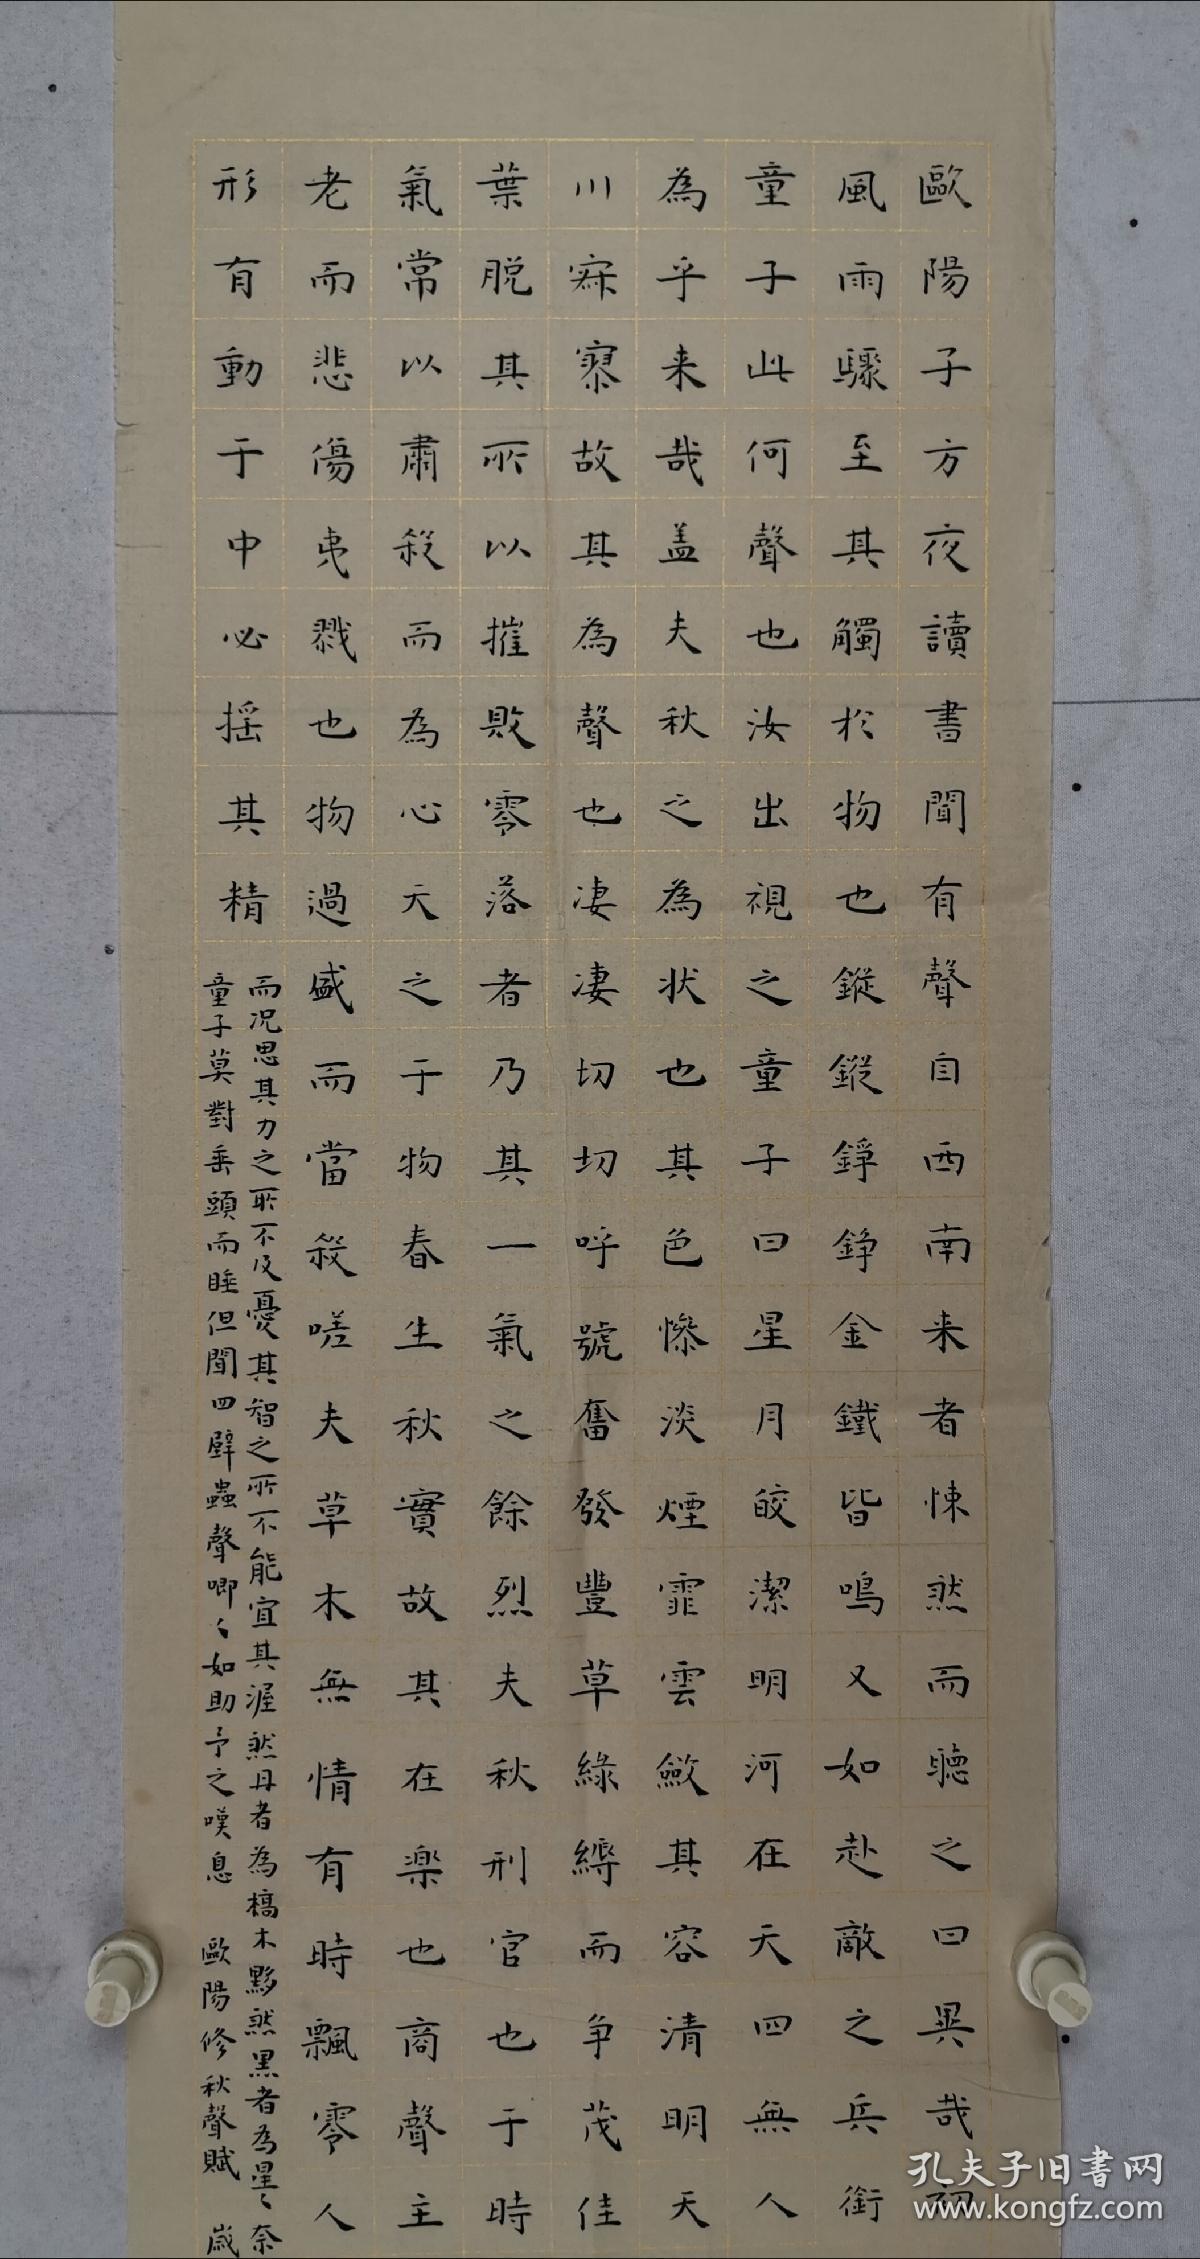 歐陽子方夜讀書聞有聲自西南来者悚然而聽之曰異哉初
風雨驟至其觸於物也鏦鏦錚錚金鐵皆鳴又如赴敵之兵銜
童子此何聲也汝出視之童子曰星月皎潔明河在天四無人
為乎来哉盖夫秋之為状也其色慘淡煙霏雲斂其容清明天
川寂寥故其為聲也淒淒切切呼號奮發豐草綠縟而争茂佳
葉脱其所以摧敗零落者乃其一氣之餘烈夫秋刑官也于時
氣常以肅殺而為心天之于物春生秋實故其在楽也商聲主
老而悲傷夷戮也物過盛而當殺嗟夫草木無情有時飄零人
形有動于中必揺其精
而况思其力之所不及憂其智之所不能宜其渥然丹者為槁木黟然黑者為星〻奈
童子莫對垂頭而睡但聞四壁蟲聲唧〻如助予之嘆息 歐陽修秋聲賦 歲
孔夫子旧書网
www.kongfz.com